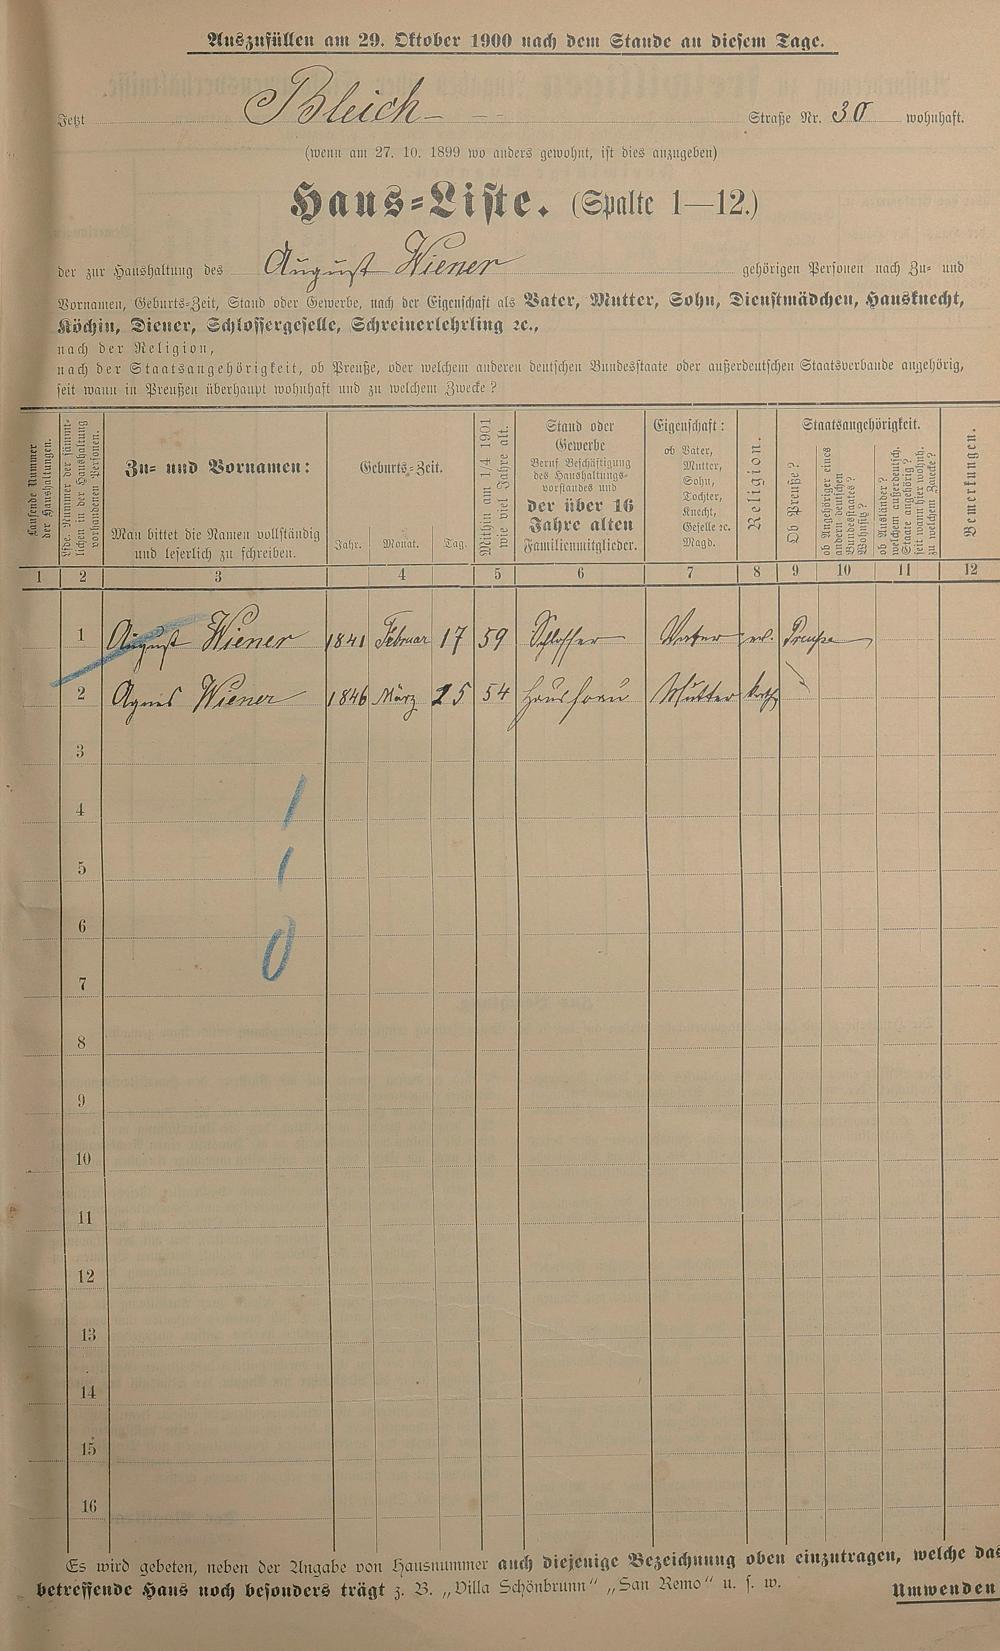 Auszufüllen am 29. Oktober 1900 nach dem Stande an diesem Tage.
Jetzt Bleich- Straße Nr. 30 wohnhaft.
(wenn am 27. 10. 1899 wo anders gewohnt, ist dies anzugeben)
Haus-Liste. (Spalte 1—12.)
der zur Haushaltung des August Wiener gehörigen Personen nach Zu- und
Vornamen, Geburts-Zeit, Stand oder Gewerbe, nach der Eigenschaft als Vater, Mutter, Sohn, Dienstmädchen, Hausknecht,
Köchin, Diener, Schlossergeselle, Schreinerlehrling ꝛc.,
nach der Religion,
nach der Staatsangehörigkeit, ob Preuße, oder welchem anderen deutschen Bundesstaate oder außerdeutschen Staatsverbande angehörig,
seit wann in Preußen überhaupt wohnhaft und zu welchem Zwecke?
Laufende Nummer
der Haushaltungen.
Lfde. Nummer der sämmt-
lichen in der Haushaltung
vorhandenen Personen.
Zu- und Vornamen:
Man bittet die Namen vollständig
und leserlich zu schreiben.
Geburts-Zeit.
Jahr. Monat. Tag.
Mithin am 1/4 1901
wie viel Jahre alt.
Stand oder
Gewerbe
Beruf Beschäftigung
des Haushaltungs-
vorstandes und
der über 16
Jahre alten
Familienmitglieder.
Eigenschaft:
ob Vater,
Mutter,
Sohn,
Tochter,
Knecht,
Geselle ꝛc.
Magd.
Religion.
Staatsangehörigkeit.
Ob Preuße?
ob Angehöriger eines
andern deutschen
Bundesstaates?
Wohnsitz?
ob Ausländer?
welchem außerdeutsch.
Staate angehörig?
seit wann hier wohnh.
zu welchem Zwecke?
Bemerkungen.
1 2 3 4 5 6 7 8 9 10 11 12
1 August Wiener 1841 Februar 17 59 Schlosser Vater ev. Preuße
2 Agnes Wiener 1846 März 25 54 Hausfrau Mutter kath
3
4 1
5 1
6
0
7
8
9
10
11
12
13
14
15
16
Es wird gebeten, neben der Angabe von Hausnummer auch diejenige Bezeichnung oben einzutragen, welche das
betreffende Haus noch besonders trägt z. B. „Villa Schönbrunn“ „San Remo“ u. s. w.
Umwenden